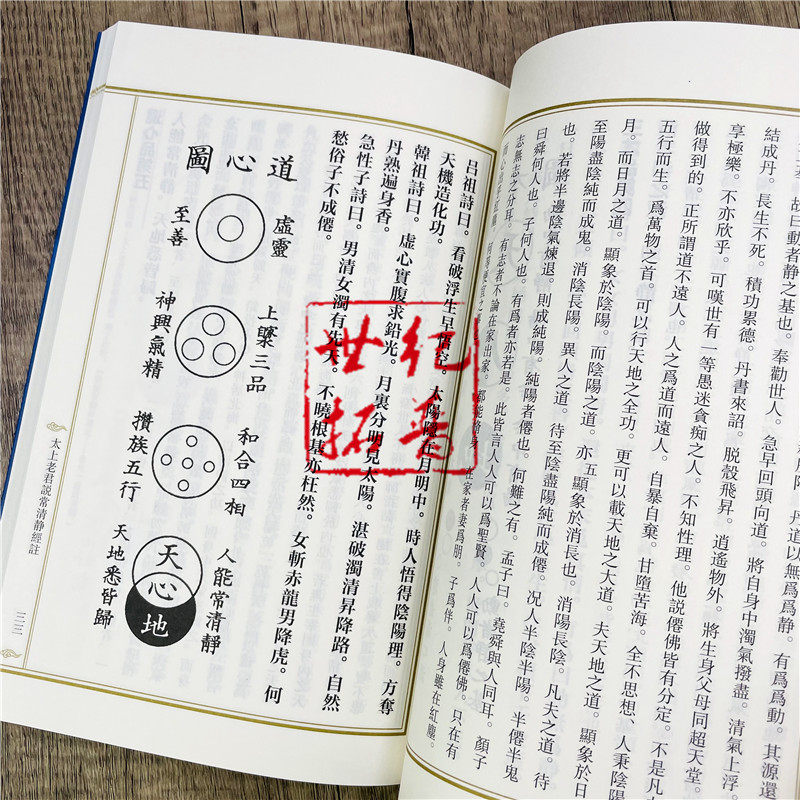 丹道以無爲爲
有爲爲動。其源還
基。故曰動者靜之基也。奉勸世人。急早回頭向道。將自身中濁氣撥盡。清氣上浮。
結成丹。長生不死。積功累德。丹書來詔。脫殼飛昇。逍遙物外。將生身父母同超天堂。
享極樂。不亦欣乎。可嘆世有一等愚迷貪痴之人。不知性理。他説僊佛皆有分定。不是凡
做得到的。正所謂道不遠人。人之爲道而遠人。自暴自棄。甘墮苦海。全不思想、人秉陰陽
五行而生。爲萬物之首。可以行天地之全功。更可以載天地之大道。夫天地之道。顯象於日
月。而日月之道。顯象於陰陽。而陰陽之道。亦顯象於消長也。消陽長陰。凡夫之道。待
至陽盡陰純而成鬼。消陰長陽。異人之道。待至陰盡陽純而成僊。况人半陰半陽。半僊半鬼
也。若將半邊陰氣煉退。則成純陽。純陽者僊也。何難之有。孟子曰。堯舜與人同耳。顏子
曰舜何人也。子何人也。有爲者亦若是。此皆言人人可以爲聖賢。人人可以爲僊佛。只在有
志無志之分耳。有志者不論在家出家。都能修身。在家者妻爲朋。子爲伴。人身雖在紅塵。
呂祖詩曰。看破浮生早悟空。太陽隱在月明中。時人悟得陰陽理。方奪
天機造化功。
韓祖詩曰。虛心實腹求鉛光。月裏分明見太陽。湛破濁清昇降路。自然
丹熟遍身香。
急性子詩曰。男清女濁有先天。不曉根基亦枉然。女斬赤龍男降虎。何
愁俗子不成僊。
道心圖
虛靈
至善
上藥三品
神與氣精
和合四相
攢族五行
人能常清靜
天地悉皆歸
天
心
地
太上老君説常清静經註
三三
世纪
拓普